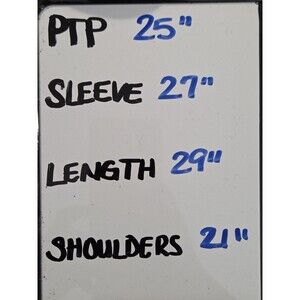 PTP 25"
SLEEVE 27"
LENGTH 29"
SHOULDERS 21"